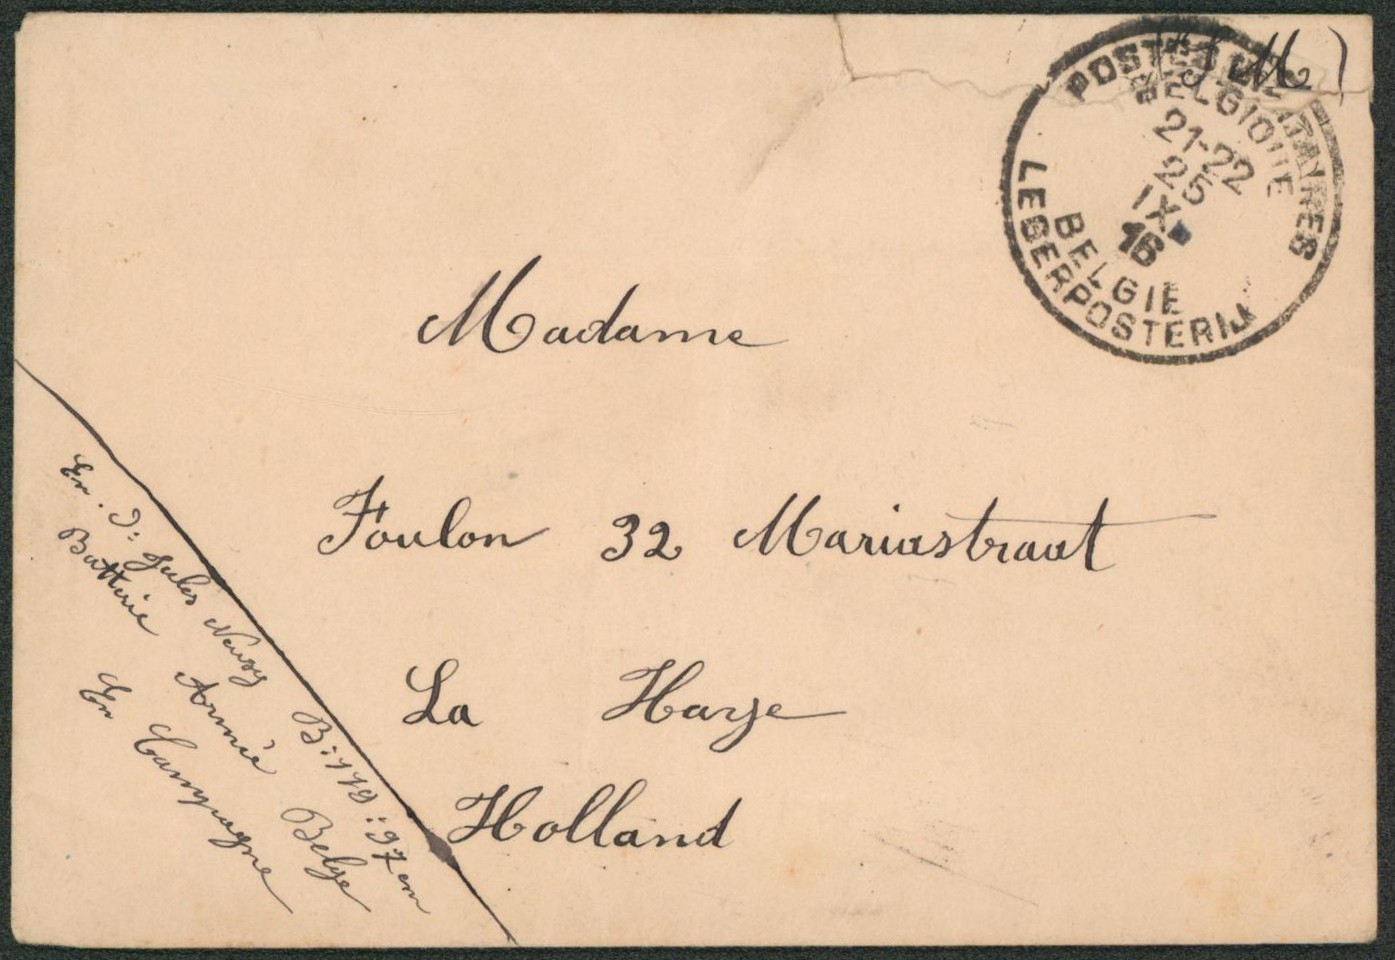 (S M)
POSTES MILITAIRES
BELGIQUE
21-22
25
IX
16
BELGIE
LEGERPOSTERIJ
Madame
Foulon 32 Mariastraat
La Haye
Holland
Jules B:119:97em
Batterie Armée Belge
En Campagne